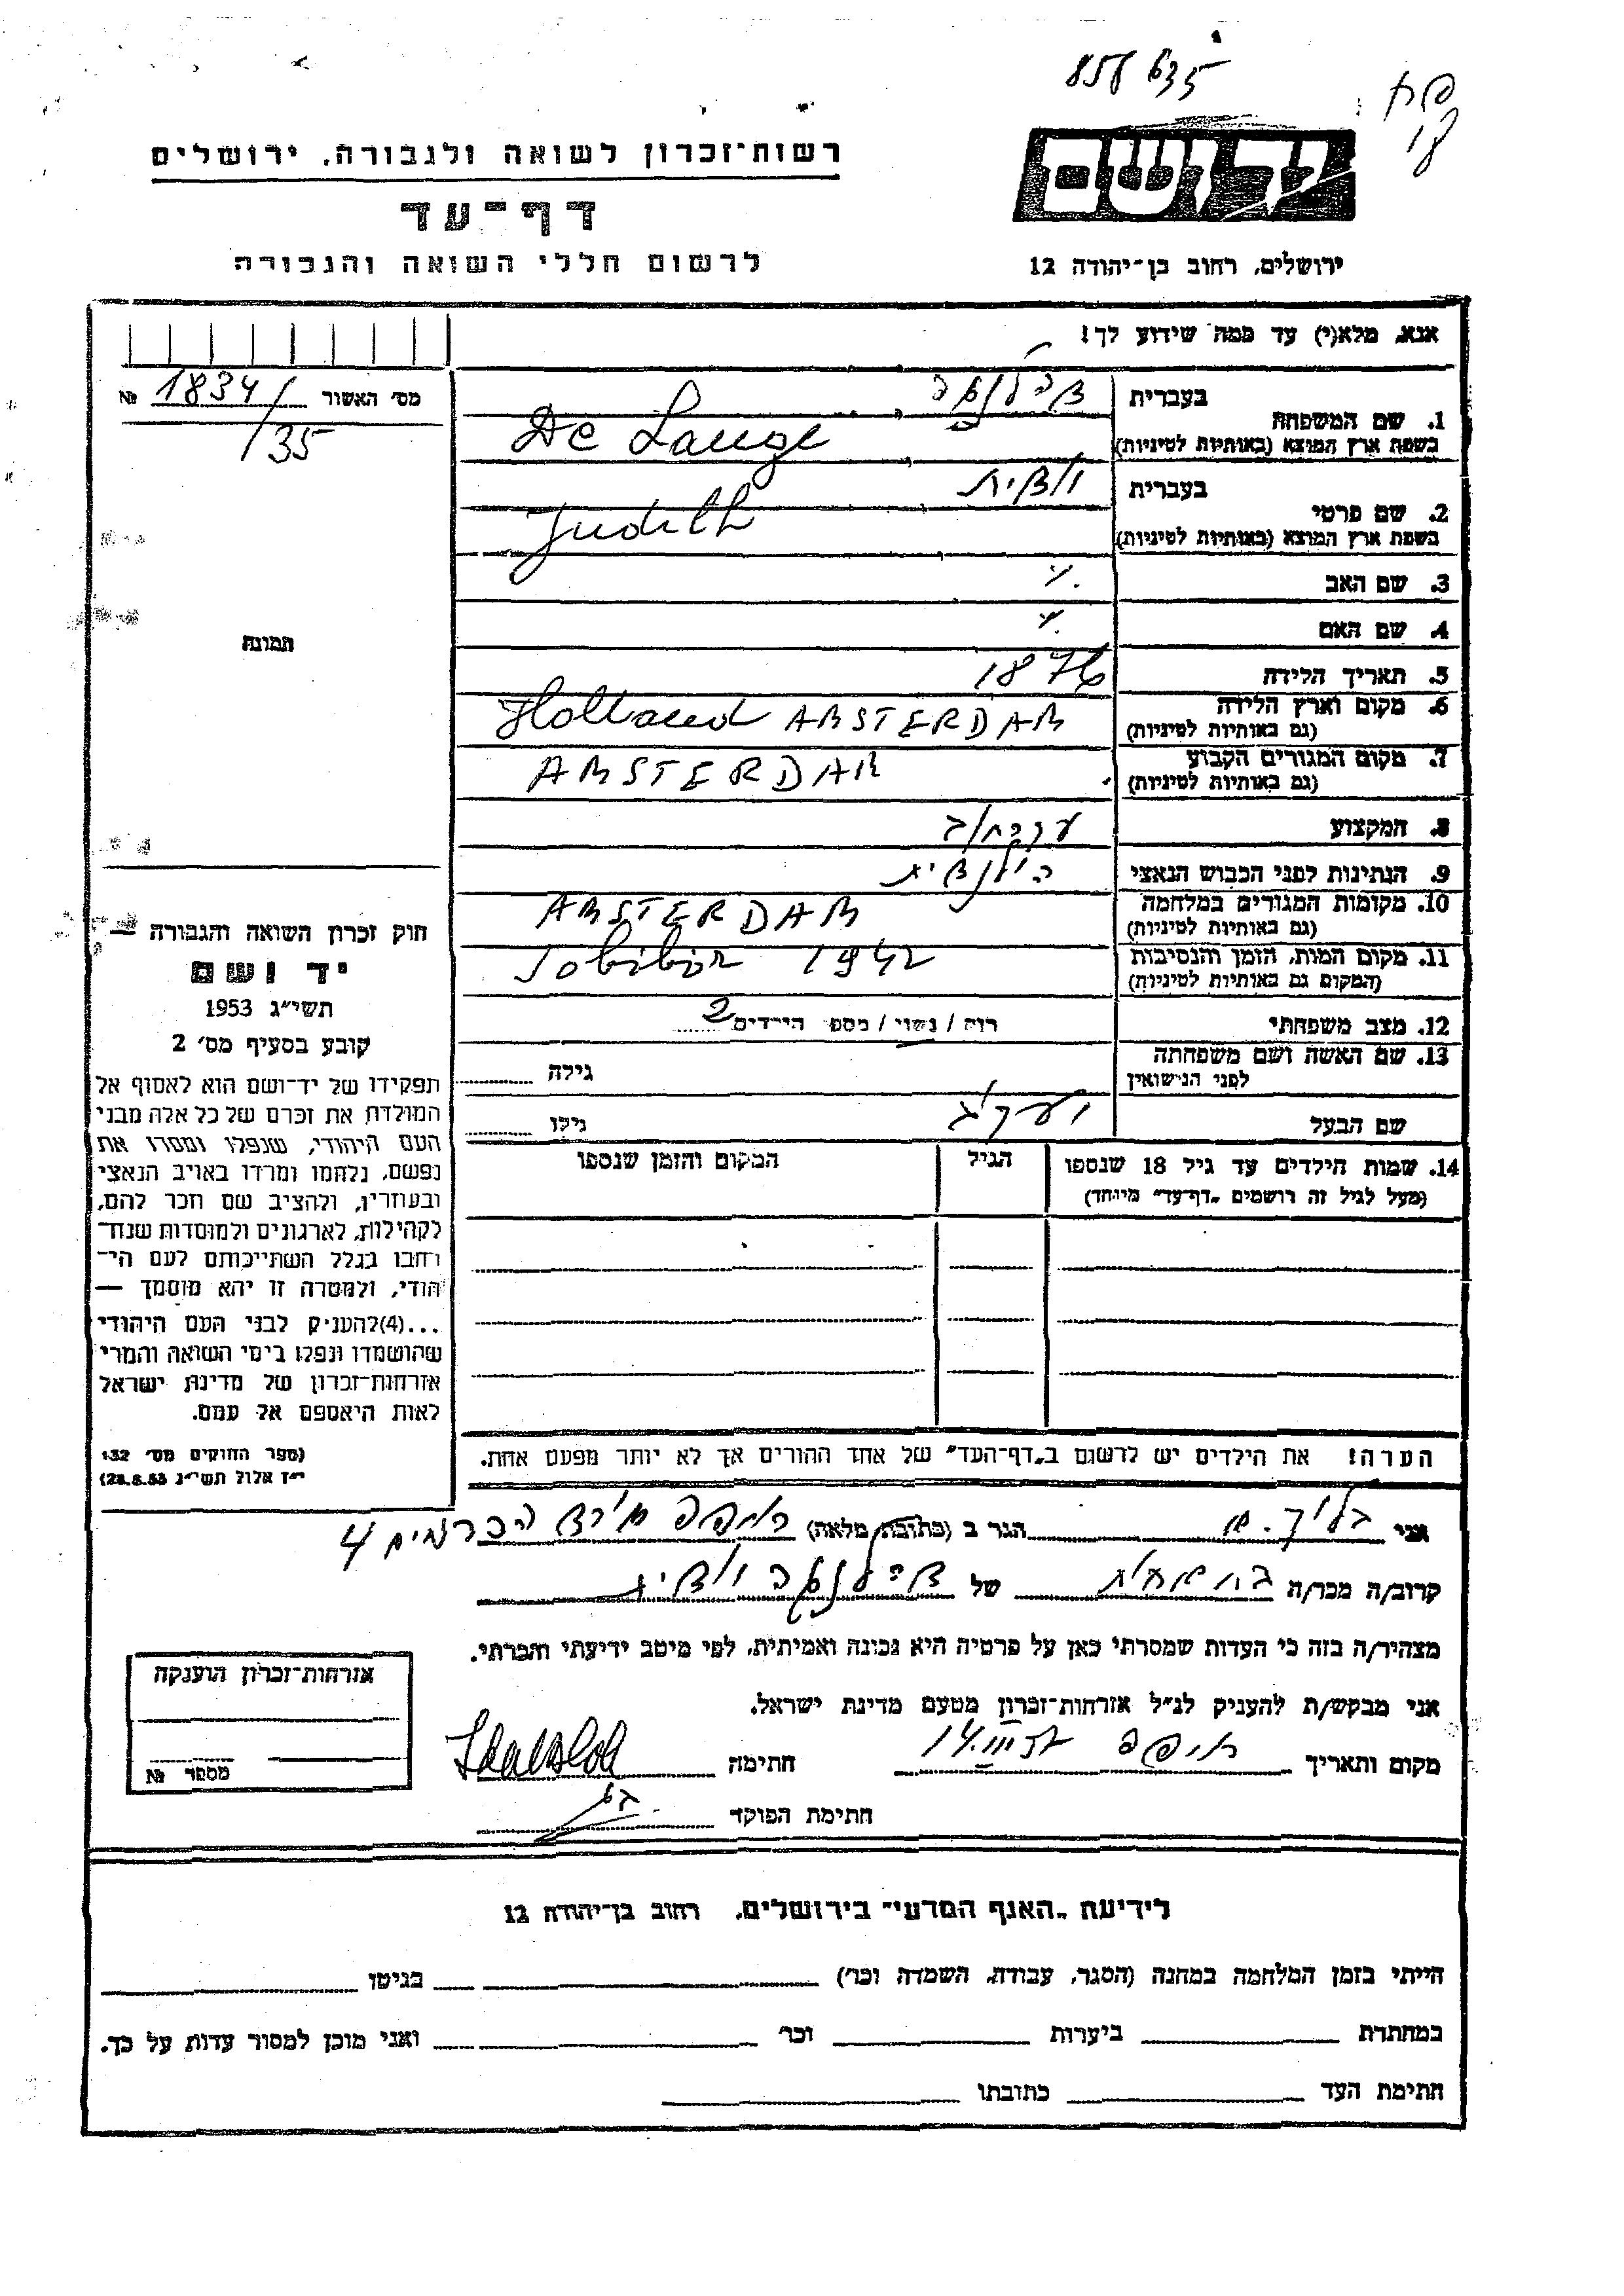 858635
יד ושם
רשות־זכרון לשואה ולגבורה, ירושלים
דף־עד
לרשום חללי השואה והגבורה
ירושלים, רחוב בן־יהודה 12
אנא, מלא(י) עד כמה שידוע לך!
מס׳ האשור 1834/ №
/35
1. שם המשפחה
בעברית
בשפת ארץ המוצא (באותיות לטיניות)
De Lange
2. שם פרטי
בעברית יודית
בשפת ארץ המוצא (באותיות לטיניות)
Judith
3. שם האב
4. שם האם
5. תאריך הלידה 1876
6. מקום וארץ הלידה
(גם באותיות לטיניות)
Holland AMSTERDAM
7. מקום המגורים הקבוע
(גם באותיות לטיניות)
AMSTERDAM
8. המקצוע
9. הנתינות לפני הכבוש הנאצי הולנדית
10. מקומות המגורים במלחמה
(גם באותיות לטיניות)
AMSTERDAM
11. מקום המות, הזמן והנסיבות
(המקום גם באותיות לטיניות)
Sobibor 1942
12. מצב משפחתי רוק / נשוי / מספר הילדים 2
13. שם האשה ושם משפחתה
לפני הנישואין
גילה
שם הבעל יעקב גילו
14. שמות הילדים עד גיל 18 שנספו
(מעל לגיל זה רושמים „דף־עד״ מיוחד)
הגיל
המקום והזמן שנספו
תמונה
חוק זכרון השואה והגבורה —
יד ושם
תשי״ג 1953
קובע בסעיף מס׳ 2
תפקידו של יד־ושם הוא לאסוף אל
המולדת את זכרם של כל אלה מבני
העם היהודי, שנפלו ומסרו את
נפשם, נלחמו ומרדו באויב הנאצי
ובעוזריו, ולהציב שם וזכר להם,
לקהילות, לארגונים ולמוסדות שנח־
רחבו בגלל השתייכותם לעם הי־
הודי, ולמטרה זו יהא מוסמך —
...(4)להעניק לבני העם היהודי
שהושמדו ונפלו בימי השואה והמרי
אזרחות־זכרון של מדינת ישראל
לאות היאספם אל עמם.
(ספר החוקים מס׳ 132
י״ז אלול תשי״ג 28.8.53)
הערה! את הילדים יש לרשום ב„דף־העד״ של אחד ההורים אך לא יותר מפעם אחת.
אני הגר ב (כתובת מלאה) חיפה
הכרמים 4
קרוב/ה מכר/ה של יודית
מצהיר/ה בזה כי העדות שמסרתי כאן על פרטיה היא נכונה ואמיתית, לפי מיטב ידיעתי והכרתי.
אני מבקש/ת להעניק לנ״ל אזרחות־זכרון מטעם מדינת ישראל.
מקום ותאריך חיפה חתימה
חתימת הפוקד
אזרחות־זכרון הוענקה
מספר №
לידיעת „האגף המדעי״ בירושלים, רחוב בן־יהודה 12
הייתי בזמן המלחמה במחנה (הסגר, עבודה, השמדה וכו׳) בגיטו
במחתרת ביערות וכו׳ ואני מוכן למסור עדות על כך.
חתימת העד כתובתו